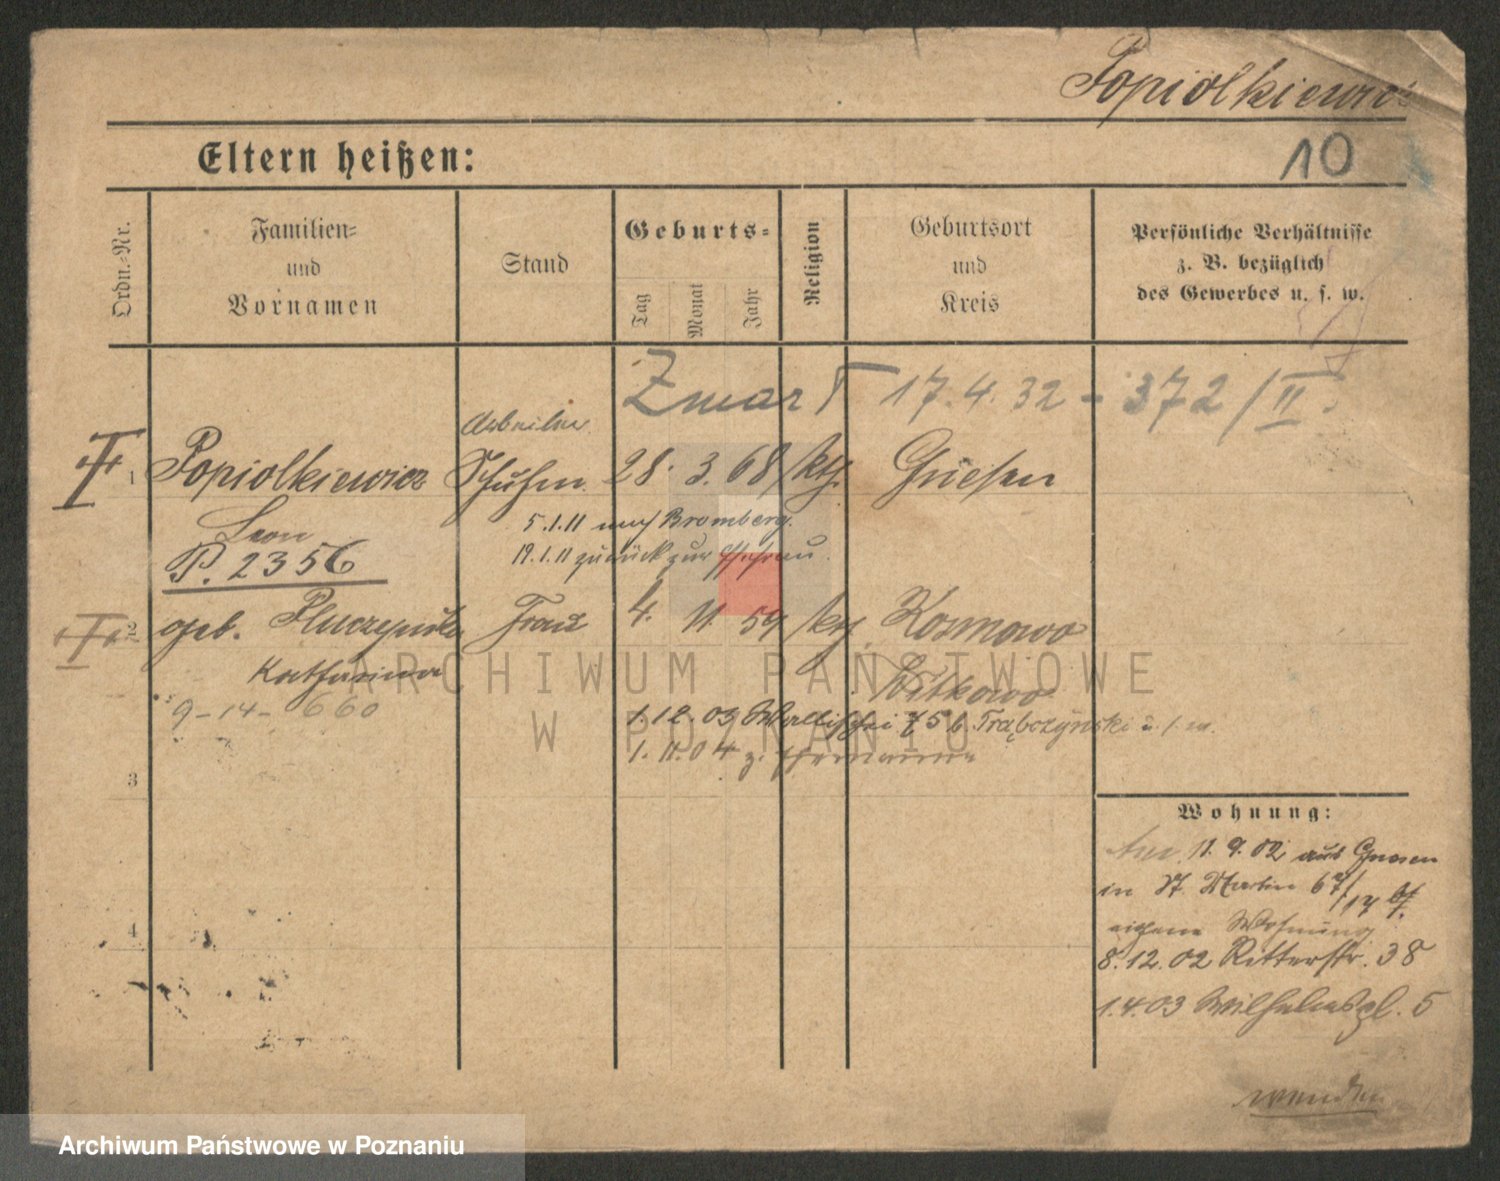 Popiolkiewicz
10
Eltern heißen:
Ordn.-Nr.
Familien-
und
Vornamen
Stand
Geburts-
Tag
Monat
Jahr
Religion
Geburtsort
und
Kreis
Persönliche Verhältnisse
z. B. bezüglich
des Gewerbes u. s. w.
Zmarł 17.4.32 - 372/II
Arbeiter
1 Popiolkiewicz Schuhm. 28. 3. 68 kth. Gnesen
Leon
5.1.11 nach Bromberg.
P. 2356
19.1.11 zurück zur Ehefrau.
2 geb. Frau 4. 11 59 kth. Kosmowo
Katharina
Witkowo
9-14-660
1.12.03 Wallischei 75 b. Trąbczyński
1.11.04 z. Ehemanne
3
4
Wohnung:
11.9.02 aus Gnesen
in St. Martin 67/
eigene Wohnung
8.12.02 Ritterstr. 38
1.4.03 Wilhelmspl. 5
wenden
ARCHIWUM PAŃSTWOWE
W POZNANIU
Archiwum Państwowe w Poznaniu